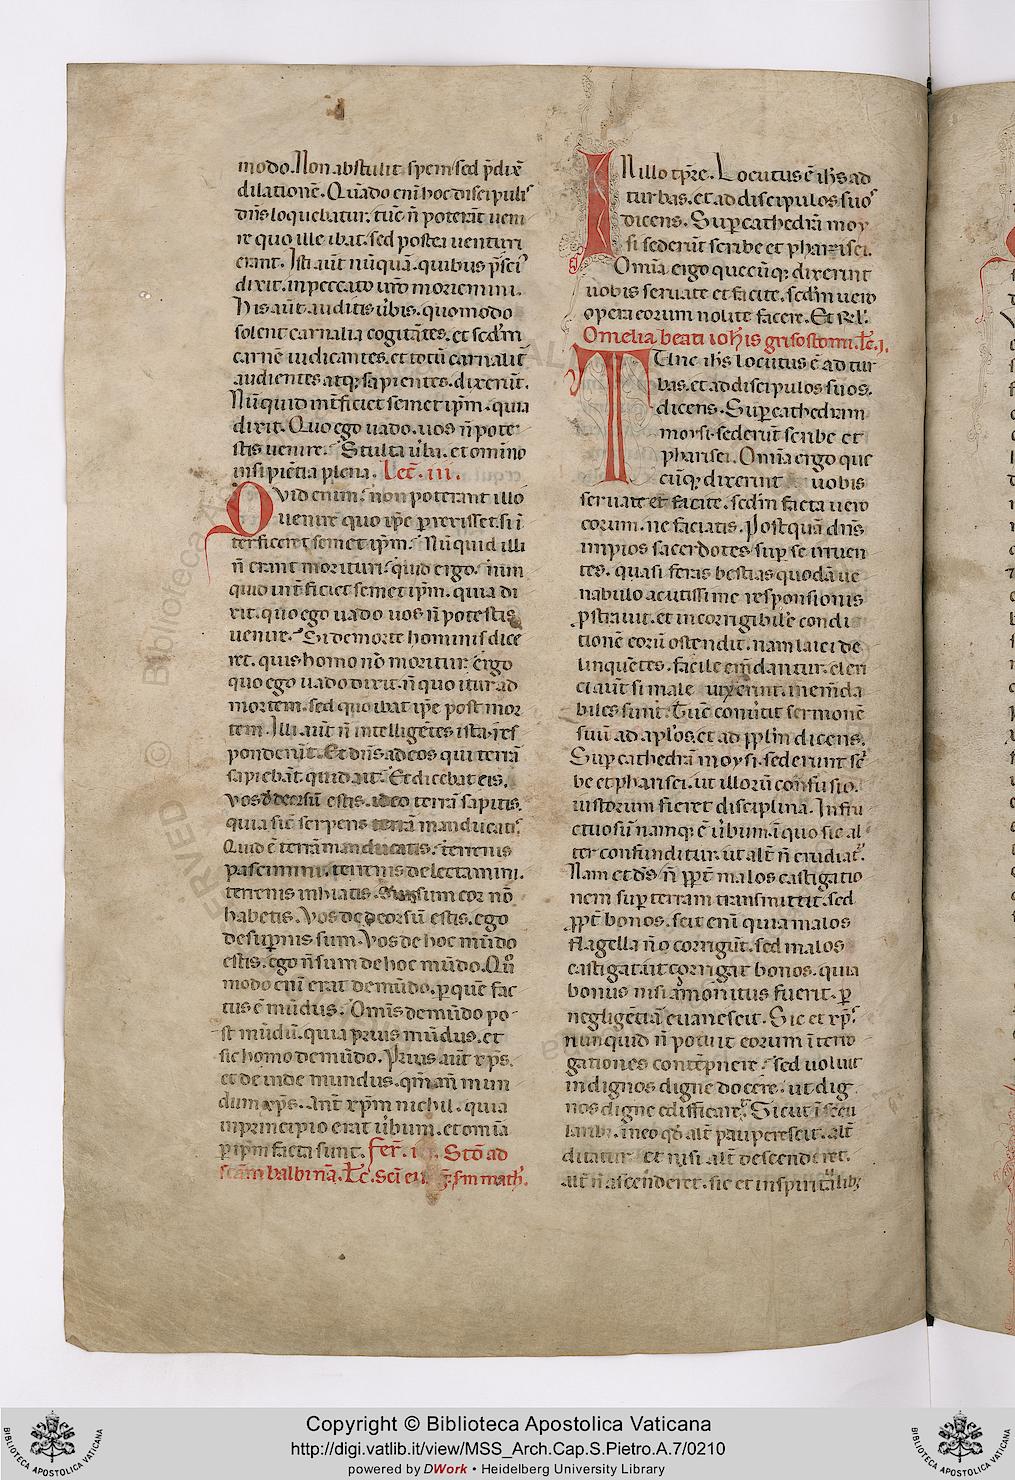 modo. Non abstulit spem sed p̄dix̄
dilationē. Quādo eni̅ hoc discipulis
dn̄s loquebatur, tūc n̄ poterāt ueni
re quo ille ibat. sed postea uenturi
erant. Isti aūt nūquā. quibus p̄sci᷒
dixit. in peccato uro moriemini.
His aūt auditis ūbis. quomodo
solent carnalia cogitātes. et scd̄m
carnē iudicantes. et totū carnalit̄
audientes atq; sapientes. dixerūt.
Nūquid int̄ficiet semet ip̄m. quia
dixit. Quo ego uado. uos n̄ pote
stis uenire. Stulta ūba. et omīno
insipiētia plena. Lect̄. iii.
Quid enim? non poterant illo
uenire quo ip̄e perexisset si ī
terficeret semet ip̄m? Nūquid illi
n̄ erant morituri? quid ergo? nun
quid int̄ficiet semet ip̄m. quia di
xit. quo ego uado uos n̄ potestis
uenire? Si de morte hominis dice
ret. quis homo nō moritur? ergo
quo ego uado dixit. n̄ quo itur ad
mortem. sed quo ibat ip̄e post mor
tem. Illi aūt n̄ intelligētes ista. r̄es
ponderūt. Et dn̄s ad eos qui terrā
sapiebāt. quid ait? Et dicebat eis.
Vos deorsū estis. ideo terrā sapitis.
quia sic̄ serpens terrā manducatis.
Quid ē terrā manducatis? terrenis
pascimini. terrenis delectamini.
terrenis inhiatis. Sursum cor nō
habetis. Vos de deorsū estis. ego
de sup̄nis sum. Vos de hoc mūdo
estis. ego n̄ sum de hoc mūdo. Quō
modo eni̅ erat de mūdo. p quē fac
tus ē mūdus? Omīs de mūdo po
st mūdū. quia prius mūdus. et
sic homo de mūdo. Prius aūt xp̄s.
et deinde mundus. qm̄ an̄ mun
dum xp̄s. Ant̄ xp̄m nichil. quia
in principio erat ūbum. et omīa
p ip̄m facta sunt. fer̄. ii. Stō ad
scām balbinā. Lc̄. Sci̅ eu g̅. sm̄ math̄.
In illo tp̄re. Locutus ē ih̄s ad
turbas. et ad discipulos suos
dicens. Sup cathedrā moy
si sederūt scribe et pharisei.
Omīa ergo quecūq; dixerint
uobis seruate et facite. scd̄m uero
opera eorum nolite facere. Et Rl̄.
Omelia beati ioh̄is grisostomi. Lc̄. j.
Tunc ih̄s locutus ē ad tur
bas. et ad discipulos suos.
dicens. Sup cathedram
moysi. sederūt scribe et
pharisei. Omīa ergo que
cūq; dixerint uobis
seruate et facite. scd̄m facta uero
eorum. ne faciatis. Postquā dn̄s
impios sacerdotes sup se irruen
tes. quasi feras bestias quodā ue
nabulo acutissime responsionis
pstrauit. et incorrigibile condi
tionē eorū ostendit. nam laici de
linquētes. facile em̄dantur. cleri
ci aūt si male uixerint. inem̄da
biles sunt. Tūc conūtit sermonē
suū ad ap̄los. et ad pp̄lm dicens.
Sup cathedrā moysi. sederunt sc̄
be et pharisei. ut illorū confusio.
uistorum fieret disciplina. Infru
ctuosū namq; ē ūbum. ī quo sic al
ter confunditur. ut alt̄ n̄ erudiat᷒.
Nam et dn̄s n̄ ppt̄ malos castigatio
nem sup terram transmittit. sed
ppt̄ bonos. scit eni̅ quia malos
flagella n̄ corrigūt. sed malos
castigat. ut corrigat bonos. quia
bonus nisi amonitus fuerit. p
negligētiā euanescit. Sic et xp̄s.
nunquid n̄ potuit eorum īterro
gationes contēpnere? sed uoluit
indignos digne docere. ut dig
nos digne edificaret. Sicut ī sceu
lanibz. in eo qd̄ alt̄ paupescit. alt̄
ditatur et nisi alt̄ descenderet.
alt̄ n̄ ascenderet. sic et in spiritalibz